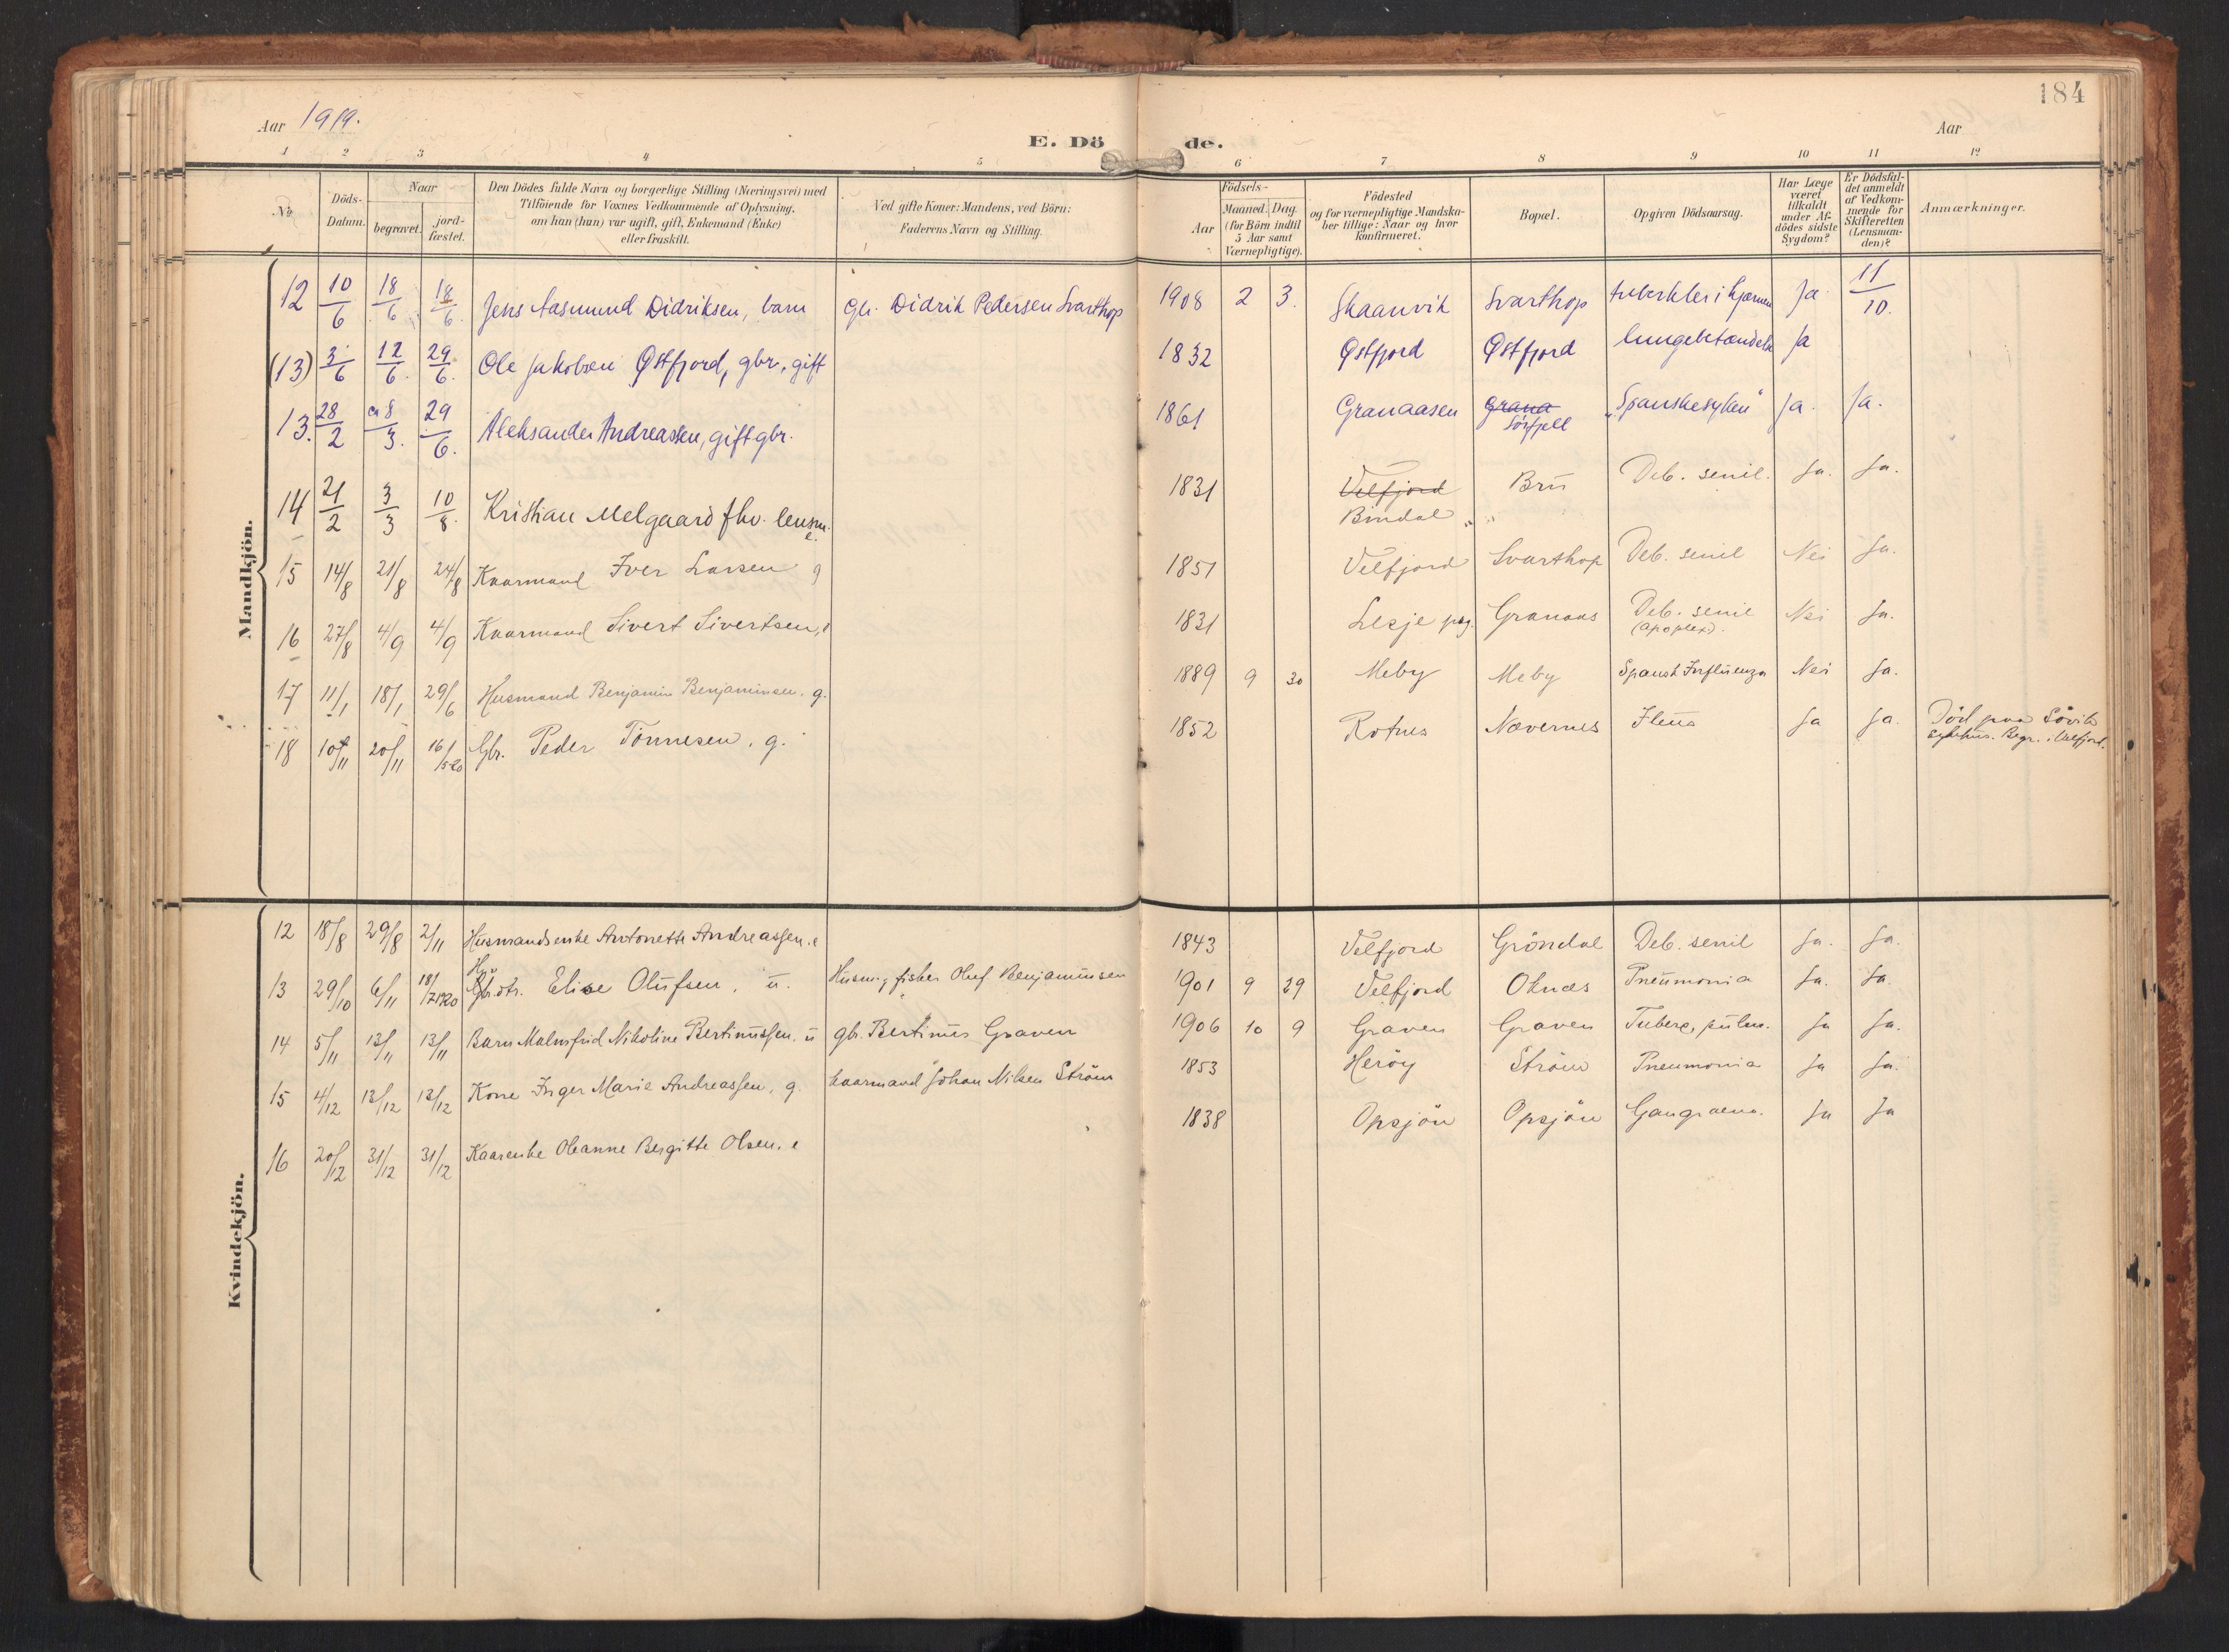 184
Aar 1919.
E. Dö de.
Aar
1 2 3 4 5 6 7 8 9 10 11 12
No.
Döds-Datum.
Naar
begravet.
jord-fæstet.
Den Dödes fulde Navn og borgerlige Stilling (Næringsvei) med
Tilföiende for Voxnes Vedkommende af Oplysning,
om han (hun) var ugift, gift, Enkemand (Enke)
eller fraskilt.
Ved gifte Koner: Mandens, ved Börn:
Faderens Navn og Stilling.
Födsels-
Aar
Maaned. Dag.
(for Börn indtil
5 Aar samt
Værnepligtige).
Födested
og for værnepligtige Mandska-
ber tillige: Naar og hvor
konfirmeret.
Bopæl.
Opgiven Dödsaarsag.
Har Læge
været
tilkaldt
under Af-
dödes sidste
Sygdom?
Er Dödsfal-
det anmeldt
af Vedkom-
mende for
Skifteretten
(Lensman-
den)?
Anmærkninger.
Mandkjön.
12 10/6 18/6 18/6. Jens Aasmund Didriksen, barn Gbr. Didrik Pedersen Svarthop 1908 2 3. Skaanvik Svarthop tuberkler i hjernen Ja 11/10.
(13) 3/6 12/6. 29/6. Ole Jakobsen Østfjord, gbr., gift 1832 Østfjord Østfjord lungebetændelse Ja
13. 28/2 ca 8/3. 29/6. Aleksander Andreassen, gift gbr. 1861 Granaasen Grana Sörfjell "Spanskesyken" Ja. Ja.
14 21/2 3/3 10/8. Kristian Melgaard fhv. lensm. e. 1831 Velfjord Bindal Brü Deb. senil. Ja. Ja.
15 14/8 21/8 24/8 Kaarmand Iver Larsen g 1851 Velfjord Svarthop Deb. senil Nei Ja.
16 27/8 4/9 4/9 Kaarmand Sivert Sivertsen, 1831 Lesje pgj. Granaas Deb. senil (apoplex). Nei Ja.
17 11/1 18/1 29/6 Husmand Benjamin Benjaminsen. g. 1889 9 30 Meby Meby Spansk Influenza Nei Ja.
18 10/11 20/11 16/5 20 Gbr. Peder Tönnesen. g. 1852 Rotnes Nævernes Ileus Ja Ja. Död paa Sövik sykehus. Begr. i Velfjord.
Kvindekjön.
12 18/8 29/8 2/11 Husmandsenke Antonette Andreassen. e 1843 Velfjord Gröndal Deb. senil Ja. Ja.
13 29/10 6/11 Elise Olufsen, u. Husm. & fisker Oluf Benjaminsen 1901 9 29 Velfjord Oknes Pneumonia Ja. Ja.
14 5/11 13/11 13/11 Barn Malmfrid Nikoline Bertinussen. u gbr. Bertinus Graven 1906 10 9 Graven Graven Tuberc, pulm. Ja Ja.
15 4/12 13/12 13/12 Kone Inger Marie Andreassen, g. kaarmand Johan Nilsen Ström 1853 Heröy Ström Pneumonia Ja Ja.
16 20/12 31/12 31/12 Kaarenke Oleanne Bergitte Olsen. e 1838 Opsjön Opsjön Gangraena. Ja Ja